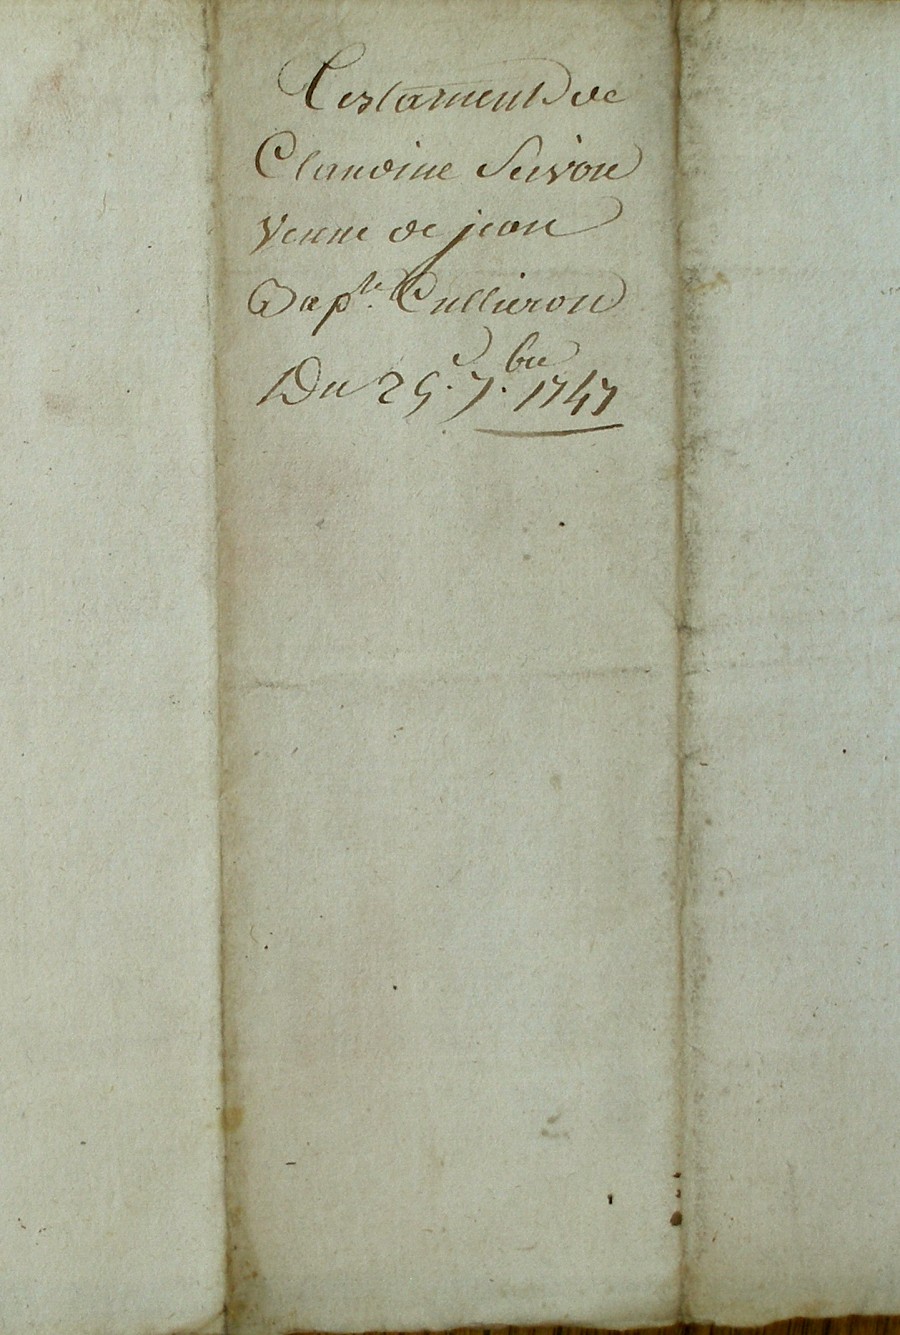 Testament de
Claudine Seivon
Veuve de jean
Bap.te Cullieron
Du 25.e 7.bre 1747